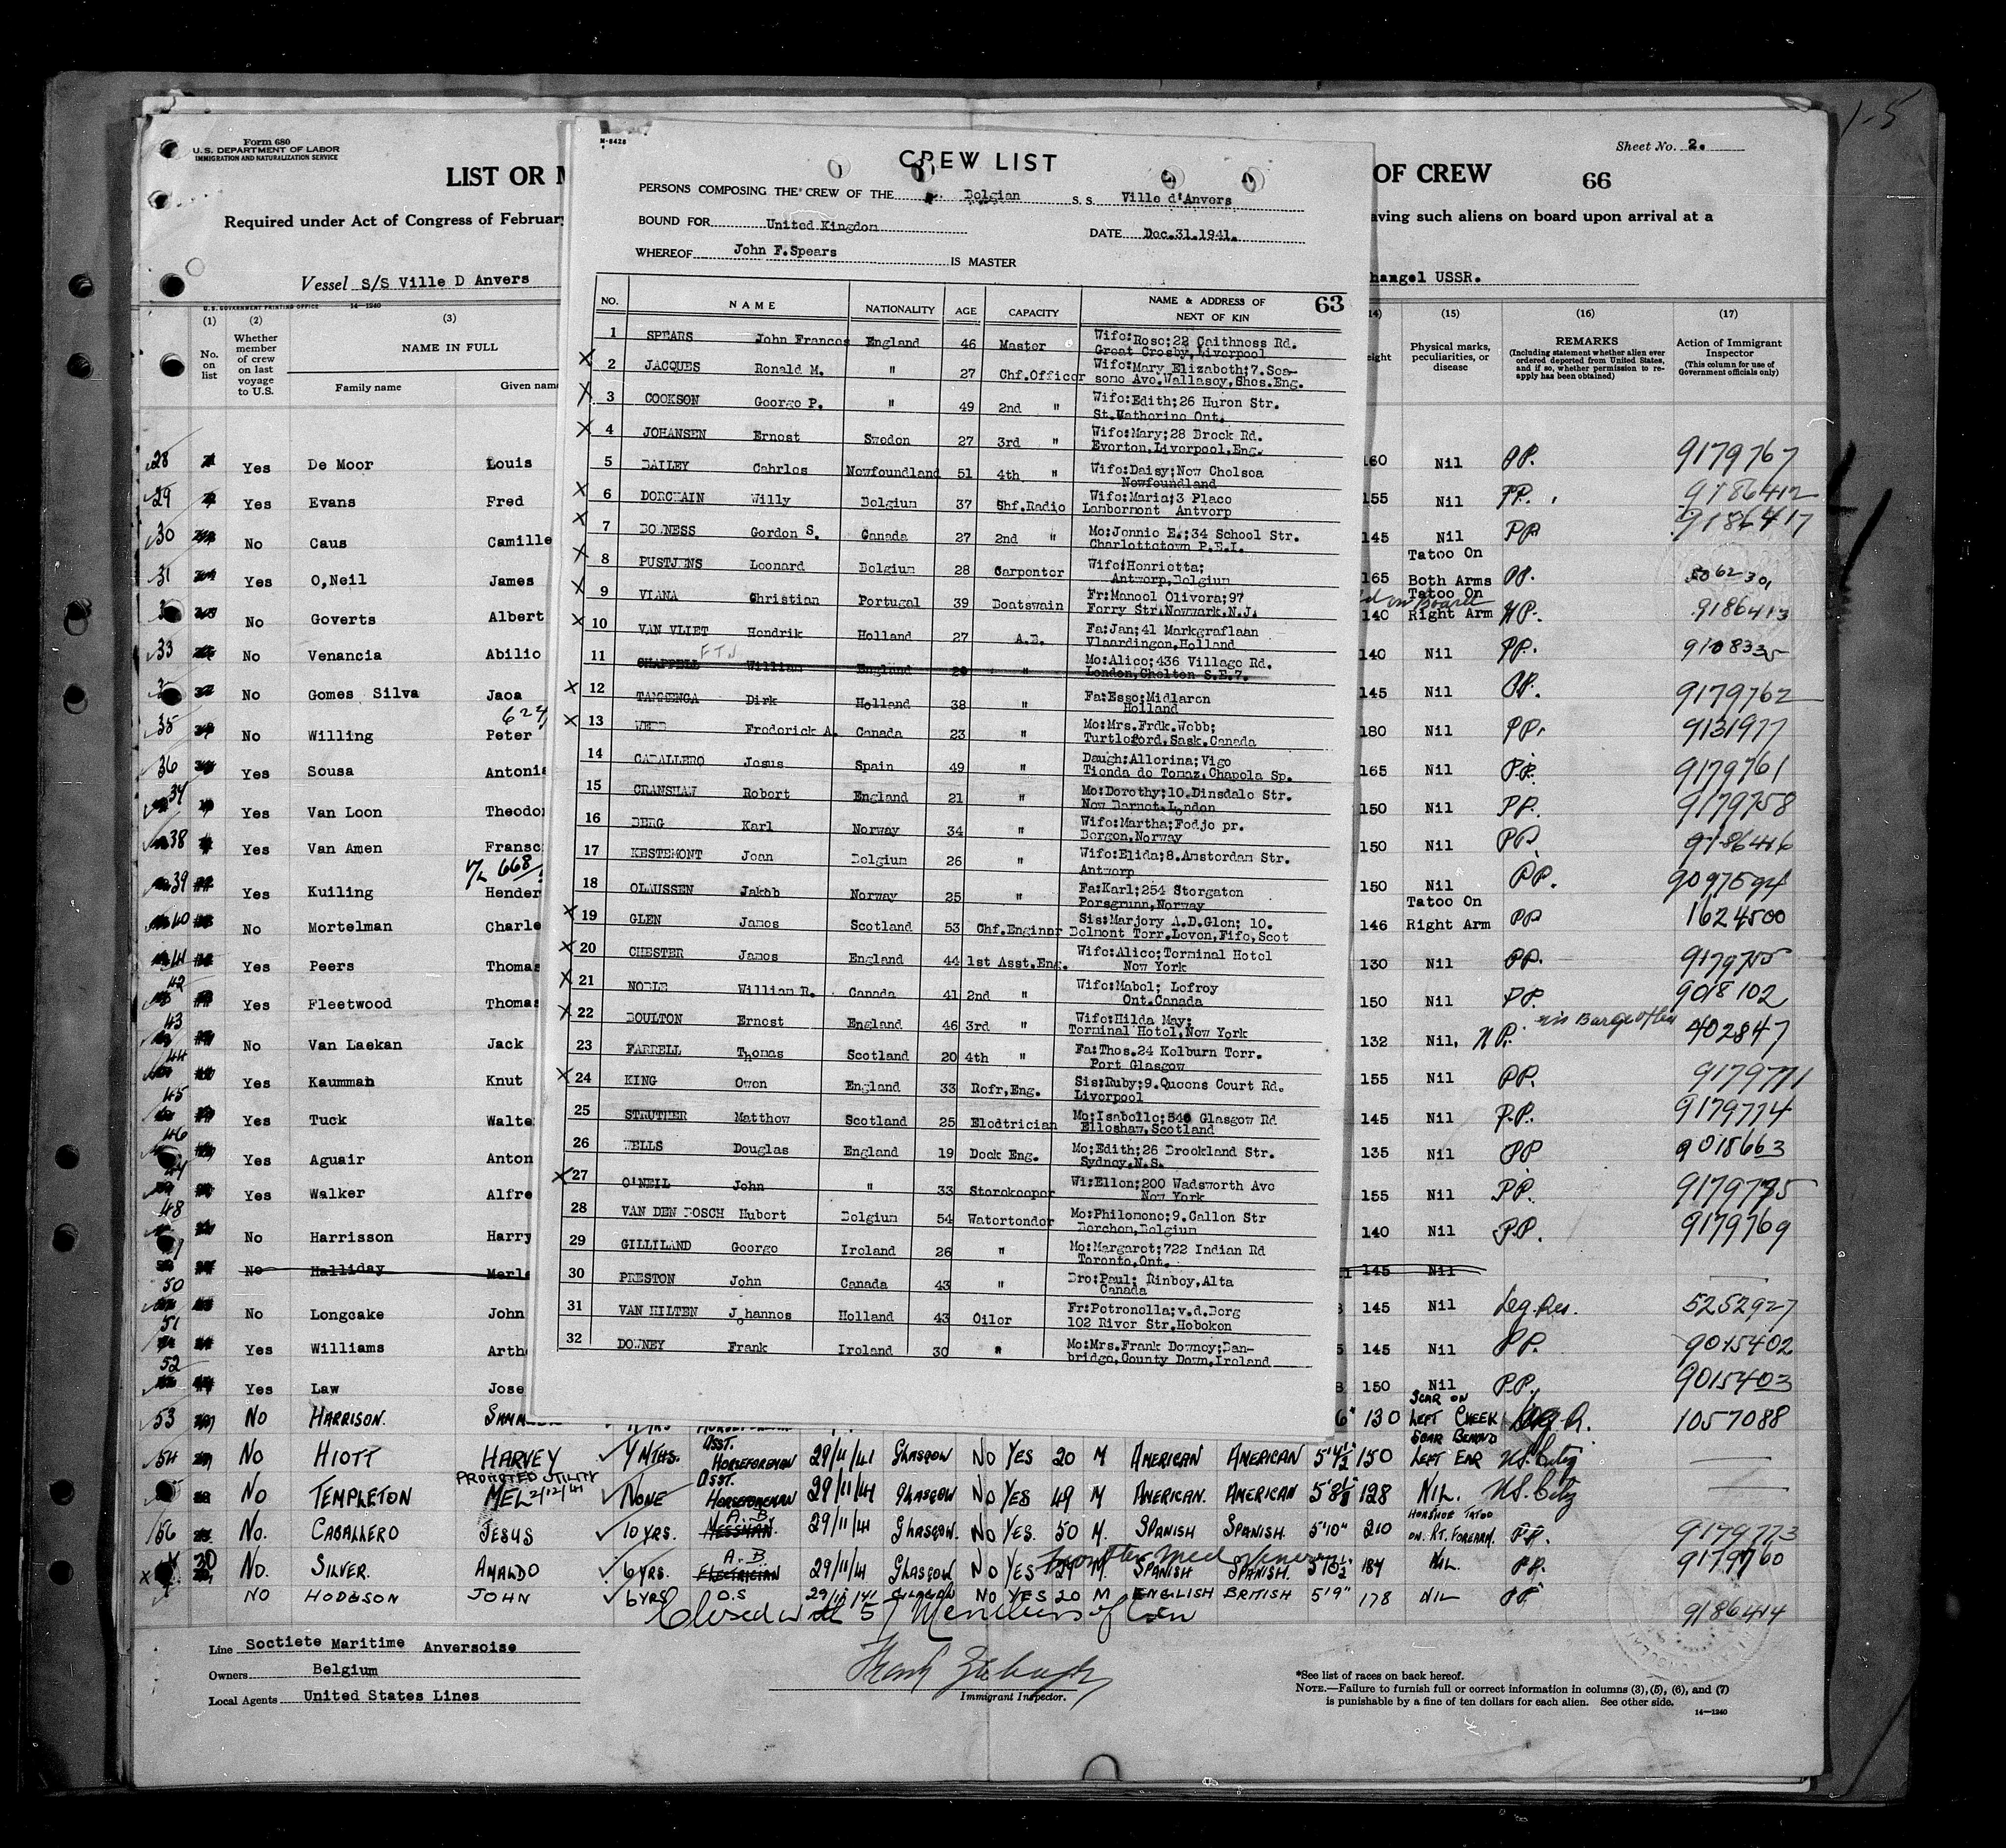 1-5
Form 680
U.S. DEPARTMENT OF LABOR
IMMIGRATION AND NATURALIZATION SERVICE
Sheet No. 2.
LIST OR M
OF CREW 66
Required under Act of Congress of February
aving such aliens on board upon arrival at a
Vessel S/S Ville D Anvers
hangel USSR.
U.S. GOVERNMENT PRINTING OFFICE 14-1240
M-8428
CREW LIST
PERSONS COMPOSING THE CREW OF THE Belgian S.S. Ville d'Anvers
BOUND FOR United Kingdom DATE Dec.31.1941.
WHEREOF John F.Spears IS MASTER
NO. NAME NATIONALITY AGE CAPACITY NAME & ADDRESS OF NEXT OF KIN 63
1 SPEARS John Frances England 46 Master Wife:Rose;22 Caithness Rd.
Great Crosby,Liverpool
X 2 JACQUES Ronald M. " 27 Chf.Officer Wife:Mary Elizabeth;7.Sea-
some Ave.Wallasey,Shes.Eng.
X 3 COOKSON George P. " 49 2nd " Wife:Edith;26 Huron Str.
St.Catherine Ont.
X 4 JOHANSEN Ernest Sweden 27 3rd " Wife:Mary;28 Brock Rd.
Everton,Liverpool,Eng.
5 BAILEY Cahrles Newfoundland 51 4th " Wife:Daisy;New Chelsea
Newfoundland
X 6 DORCHAIN Willy Belgium 37 Shf.Radio Wife:Maria;3 Place
Lambermont Antwerp
X 7 BOWNESS Gordon S. Canada 27 2nd " Mo:Jennie E.;34 School Str.
Charlottetown P.E.I.
X 8 PUSTJENS Leonard Belgium 28 Carpenter Wife:Henrietta;
Antwerp,Belgium
X 9 VIANA Christian Portugal 39 Boatswain Fr:Manoel Olivera;97
Ferry Str.Newwark.N.J.
X 10 VAN VLIET Hendrik Holland 27 A.B. Fa:Jan;41 Markgraflaan
Vlaardingen,Holland
FTJ
11 CHAPPELL William England 20 " Mo:Alice;436 Village Rd.
London,Cholten S.E.7.
X 12 TAMMENGA Dirk Holland 38 " Fa:Esse;Midlaren
Holland
X 13 WEBB Frederick A. Canada 23 " Mo:Mrs.Frdk.Webb;
Turtleford,Sask.Canada
14 CABALLERO Jesus Spain 49 " Daugh:Allerina;Vigo
Tienda de Tomaz,Chapela Sp.
15 CRANSHAW Robert England 21 " Mo:Dorothy;10.Dinsdale Str.
New Barnet,London
16 BERG Karl Norway 34 " Wife:Martha;Fedje pr.
Bergen,Norway
17 KESTEMONT Jean Belgium 26 " Wife:Elida;8.Amsterdam Str.
Antwerp
18 OLAUSSEN Jakob Norway 25 " Fa:Karl;254 Storgaten
Porsgrunn,Norway
X 19 GLEN James Scotland 53 Chf.Enginer Sis:Marjory A.D.Glen; 10.
Belmont Terr.Leven,Fife,Scot
X 20 CHESTER James England 44 1st Asst.Eng. Wife:Alice;Terminal Hotel
New York
X 21 NOBLE William R. Canada 41 2nd " Wife:Mabel; Lefroy
Ont.Canada
X 22 BOULTON Ernest England 46 3rd " Wife:Hilda May;
Terminal Hotel,New York
23 FARRELL Thomas Scotland 20 4th " Fa:Thos.24 Kelburn Terr.
Port Glasgow
X 24 KING Owen England 33 Refr,Eng. Sis:Ruby;9.Queens Court Rd.
Liverpool
25 STRUTHER Matthew Scotland 25 Elodtrician Mo;Isabelle;546 Glasgow Rd
Elleshaw,Scotland
26 WELLS Douglas England 19 Deck Eng. Mo;Edith;26 Brookland Str.
Sydney,N.S.
X 27 O'NEIL John " 33 Storekeeper Wi:Ellen;200 Wadsworth Ave
New York
28 VAN DEN BOSCH Hubert Belgium 54 Watertender Mo:Philomene;9.Callen Str
Berchen,Belgium
29 GILLILAND George Ireland 26 " Mo:Margaret;722 Indian Rd
Toronto,Ont.
30 PRESTON John Canada 43 " Bro:Paul; Rinbey,Alta
Canada
31 VAN HILTEN Johannes Holland 43 Oiler Fr:Petronella;v.d.Berg
102 River Str.Hoboken
32 DOWNEY Frank Ireland 30 " Mo:Mrs.Frank Downey;Ban-
bridge,County Down,Ireland
(1) No. on list
(2) Whether member of crew on last voyage to U.S.
(3) NAME IN FULL
Family name Given name
14) eight
(15) Physical marks, peculiarities, or disease
(16) REMARKS
(Including statement whether alien ever ordered deported from United States, and if so, whether permission to reapply has been obtained)
(17) Action of Immigrant Inspector
(This column for use of Government officials only)
28 Yes De Moor Louis 160 Nil PP. 9179767
29 Yes Evans Fred 155 Nil PP. 9186412
30 No Caus Camille 145 Nil PP 9186417
31 Yes O,Neil James 165 Tatoo On Both Arms PP. 5062301
No Goverts Albert 140 Tatoo On Right Arm PP. 9186413
33 No Venancia Abilio 140 Nil PP. 9108335
No Gomes Silva Jaoa 145 Nil PP. 9179762
624
35 No Willing Peter 180 Nil PP. 9131977
36 Yes Sousa Antonia 165 Nil P.P. 9179761
37 Yes Van Loon Theodor 150 Nil PP. 9179758
38 Yes Van Amen Fransc 150 Nil PP. 9186416
V/L 668/
39 Yes Kuiling Hender 150 Nil PP. 9097594
40 No Mortelman Charle 146 Tatoo On Right Arm PP 1624500
41 Yes Peers Thomas 130 Nil PP. 9179755
42 Yes Fleetwood Thomas 150 Nil P.P. 9018102
43 No Van Laekan Jack 132 Nil, N.P. 402847
44 Yes Kaumman Knut 155 Nil PP. 9179771
45 Yes Tuck Walte 145 Nil P.P. 9179774
46 Yes Aguair Anton 135 Nil PP 9018663
47 Yes Walker Alfre 155 Nil P.P. 9179775
48 No Harrisson Harry 140 Nil P.P. 9179769
No Halliday Merl 145 Nil
50 No Longcake John 145 Nil Leg.Res. 5252927
51 Yes Williams Arth 145 Nil PP. 9015402
52 Yes Law Jose 150 Nil P.P. 9015403
53 No HARRISON. 6" 130 SCAR ON LEFT CHEEK Leg.R. 1057088
54 No HIOTT HARVEY 4 MTHS. ASST. HORSEFOREMAN 29/11/41 GLASGOW NO YES 20 M AMERICAN AMERICAN 5'4½ 150 SCAR BEHIND LEFT EAR U.S. Citz
PROMOTED UTILITY 2/12/41
No TEMPLETON MEL NONE ASST. HORSEFOREMAN 29/11/41 GLASGOW NO YES 49 M AMERICAN. AMERICAN 5'8½ 128 NIL. U.S. Citz
56 No. CABALLERO JESUS 10 YRS. A.B. MESSMAN. 29/11/41 GLASGOW. NO YES. 50 M. SPANISH SPANISH. 5'10" 210 HORSHOE TATOO ON. RT. FOREARM. PP. 9179773
x 30 No. SILVER. AMALDO 6 YRS. A.B. ELECTRICIAN 29/11/41 GLASGOW NO YES 29 M. SPANISH SPANISH. 184 NIL. PP. 9179760
NO HODGSON JOHN 6 YRS O.S 29/11/41 GLASGOW NO YES 20 M ENGLISH BRITISH 5'9" 178 NIL PP. 9186414
Closed with 57 Members of Crew
Line Soctiete Maritime Anversoise
Owners Belgium
Local Agents United States Lines
Immigrant Inspector.
*See list of races on back hereof.
NOTE.—Failure to furnish full or correct information in columns (3), (5), (6), and (7)
is punishable by a fine of ten dollars for each alien. See other side.
14-1240